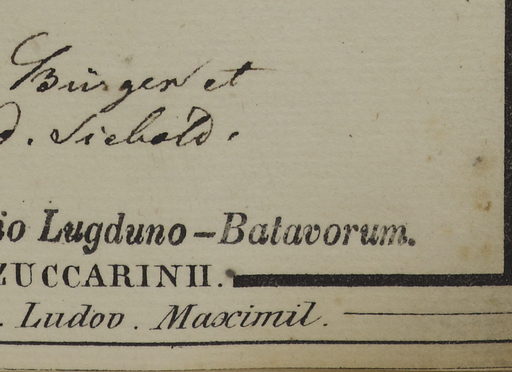 Bürger et
d. Siebold.
io Lugduno-Batavorum.
ZUCCARINII.
. Ludov. Maximil.